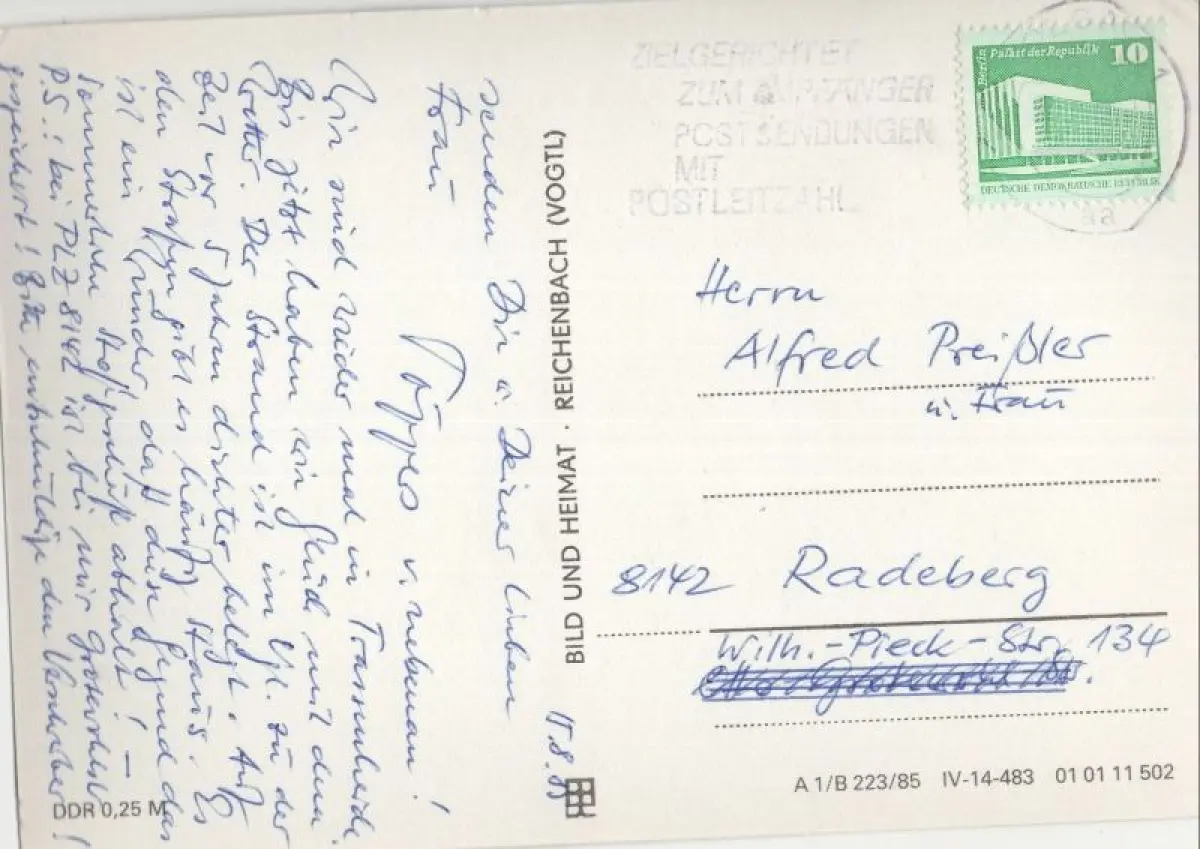 15.8.85
senden Dir u. Deiner lieben
Frau
v. nebenan!
Wir sind wieder mal in
Bis jetzt haben wir Glück mit dem
Wetter. Der Strand ist im Vgl. zu der
Zeit vor 5 Jahren dichter belegt. Auf
den Straßen gibt es häufig Staus. Es
ist ein Wunder, daß diese Gegend das
sommerliche
P.S.: bei PLZ 8142 ist bei mir Grotewohlstr.
gespeichert! Bitte entschuldige den Verschreiber!
DDR 0,25 M
BILD UND HEIMAT · REICHENBACH (VOGTL)
ZIELGERICHTET
ZUM EMPFÄNGER
POSTSENDUNGEN
MIT
POSTLEITZAHL
Berlin Palast der Republik 10
DEUTSCHE DEMOKRATISCHE REPUBLIK
Herrn
Alfred Preißler
u. Frau
8142 Radeberg
Wilh.-Pieck-Str. 134
A 1/B 223/85 IV-14-483 01 01 11 502